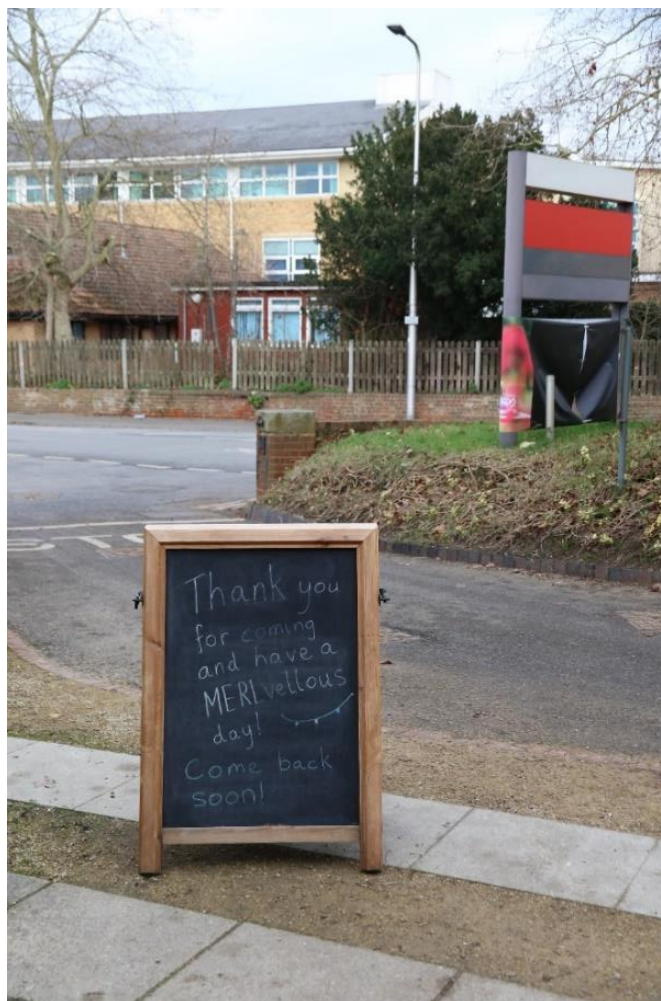 Thank you
for coming
and have a
MERLvellous
day!
Come back
soon!